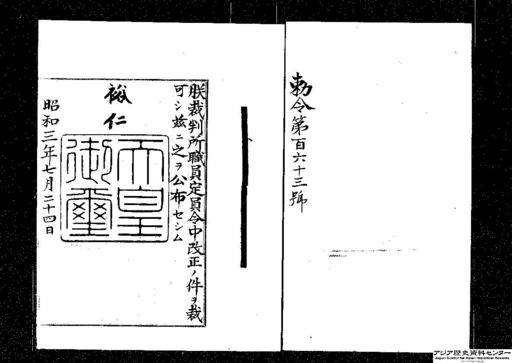 勅令第百六十三號
朕裁判所職員定員令中改正ノ件ヲ裁
可シ茲ニ之ヲ公布セシム
裕仁
天皇
御璽
昭和三年七月二十四日
アジア歴史資料センター
Japan Center for Asian Historical Records